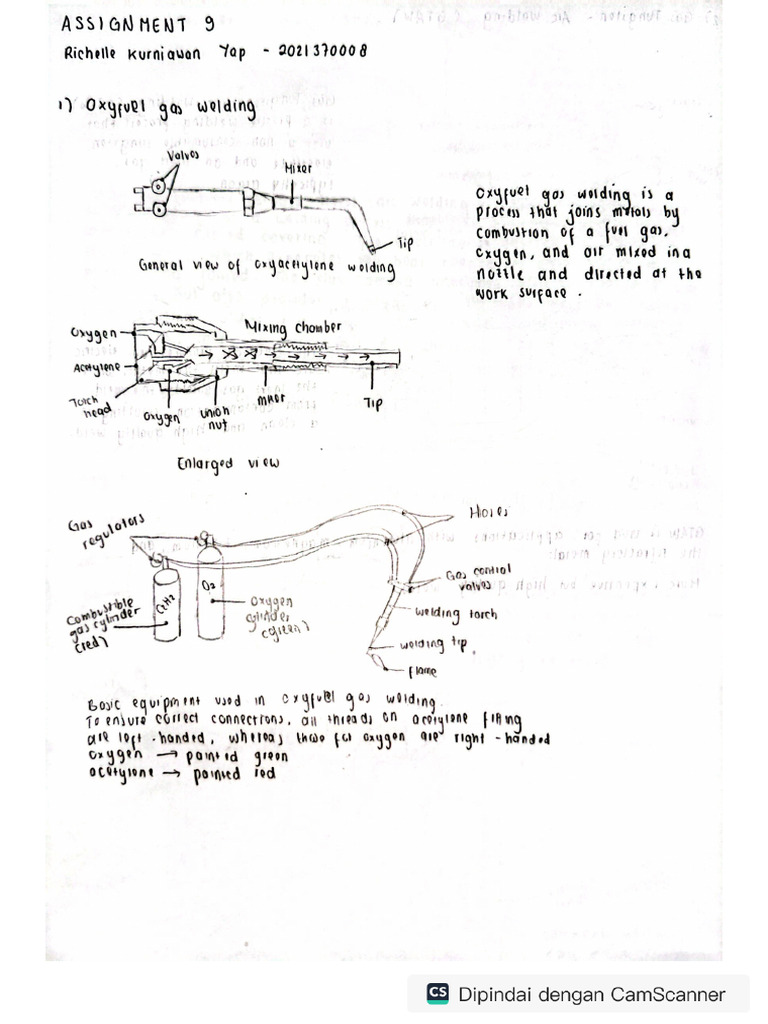 ASSIGNMENT 9
Richelle Kurniawan Yap - 2021370008
1) Oxyfuel gas welding
Valves
Mixer
Tip
General view of oxyacetylene welding
Oxyfuel gas welding is a
process that joins metals by
combustion of a fuel gas,
oxygen, and air mixed in a
nozzle and directed at the
work surface.
Oxygen
Mixing chamber
Acetylene
Torch
head
oxygen
union
nut
mixer
Tip
Enlarged view
Gas
regulators
Hoses
Gas control
valves
C2H2
O2
Combustible
gas cylinder
(red)
Oxygen
cylinder
(green)
welding torch
welding tip
flame
Basic equipment used in oxyfuel gas welding.
To ensure correct connections, all threads on acetylene fitting
are left-handed, whereas those for oxygen are right-handed
oxygen → painted green
acetylene → painted red
CS Dipindai dengan CamScanner